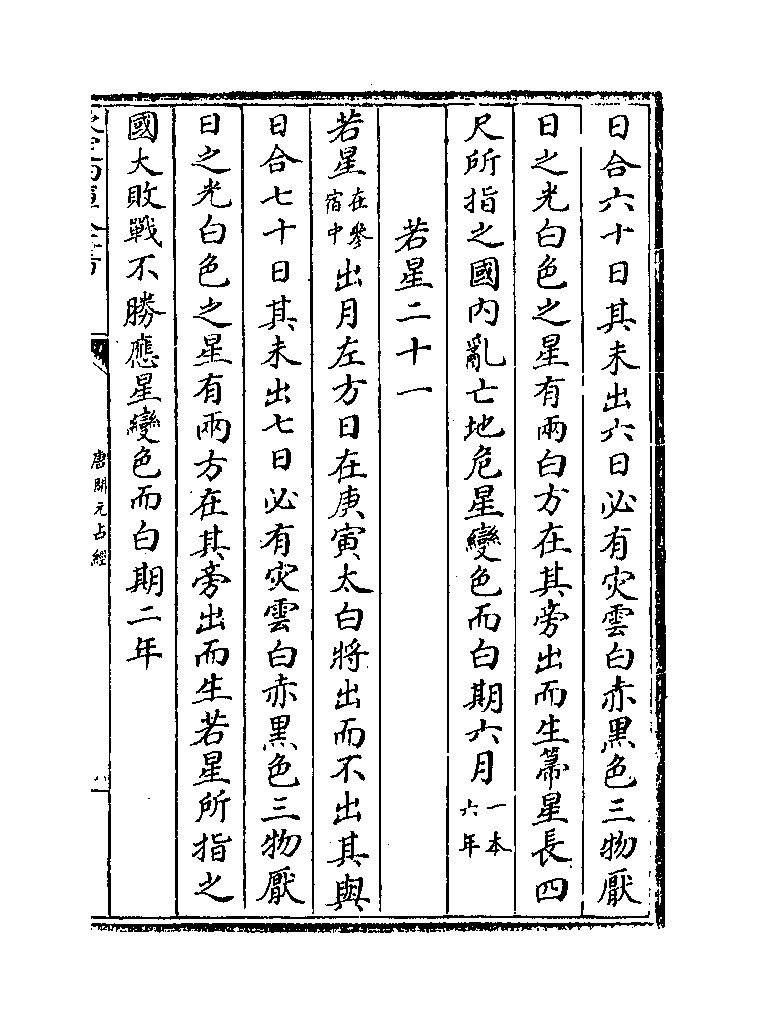 日合六十日其未出六日必有灾雲白赤黑色三物厭
日之光白色之星有兩白方在其旁出而生箒星長四
尺所指之國内亂亡地危星變色而白期六月一本六年
若星二十一
若星在參宿中出月左方日在庚寅太白將出而不出其與
日合七十日其未出七日必有灾雲白赤黑色三物厭
日之光白色之星有兩方在其旁出而生若星所指之
國大敗戰不勝應星變色而白期二年
唐開元占經